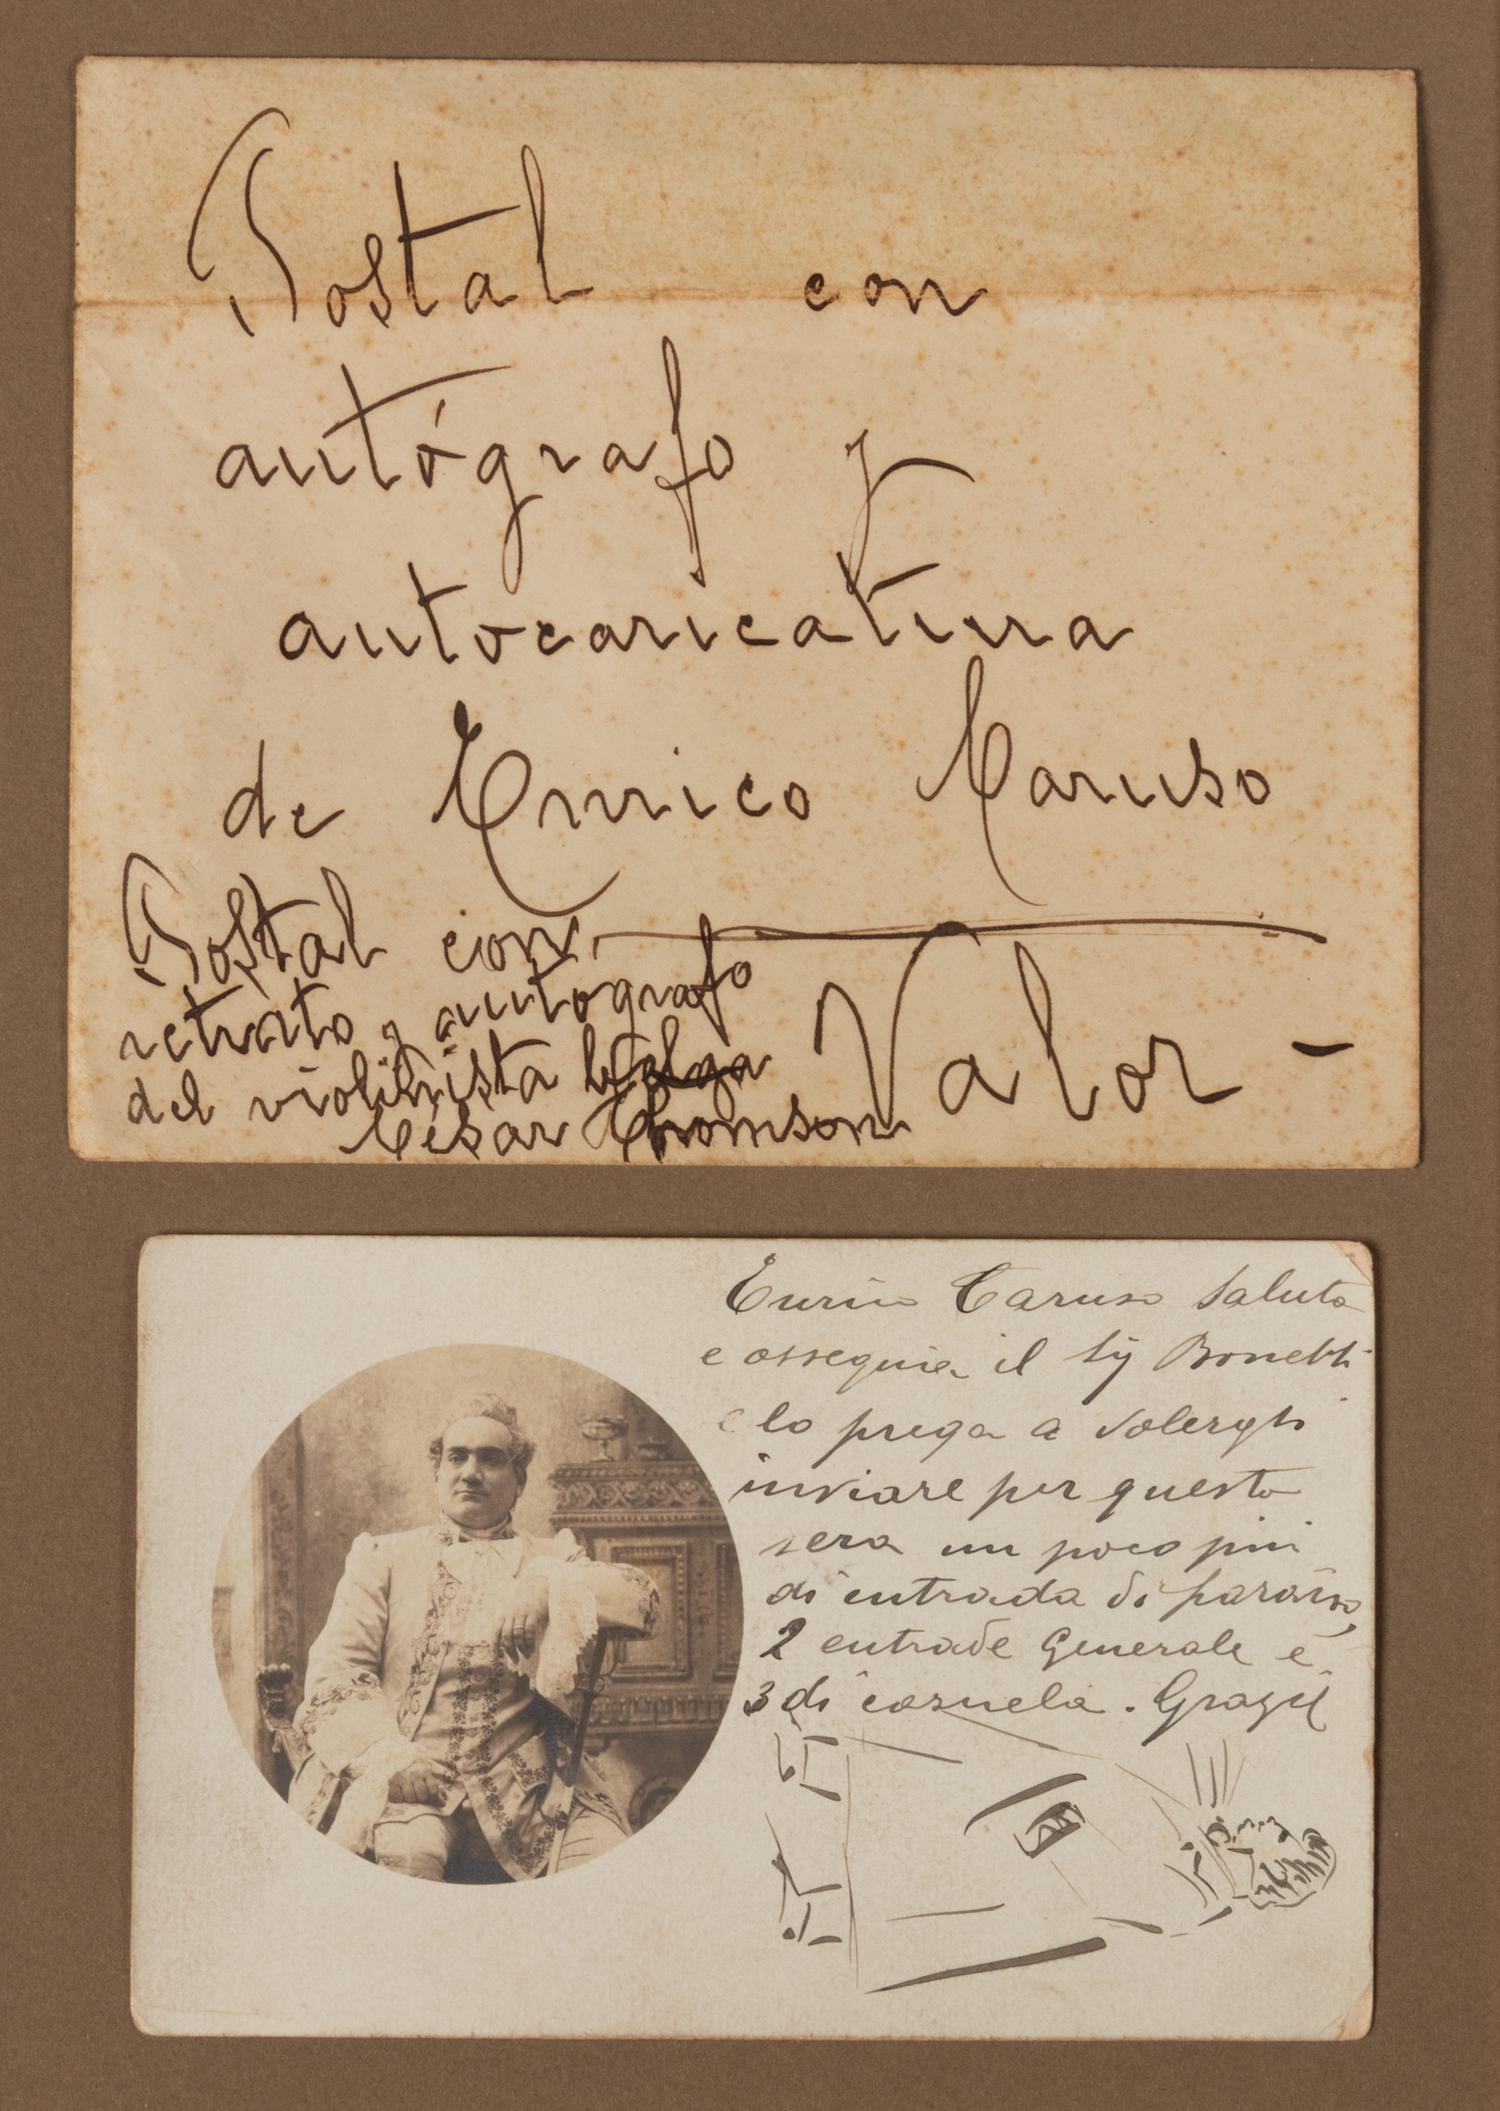 Postal con
autógrafo y
autocaricatura
de Enrico Caruso
Postal con
retrato y autógrafo
del violinista belga
César Thomson
Valor -
Enrico Caruso saluta
e ossequia il Sig Bonetti
e lo prega a
inviare per questa
sera un poco più
di entrada di paraiso,
2 entrade Generale e
3 di cazuela. Grazie